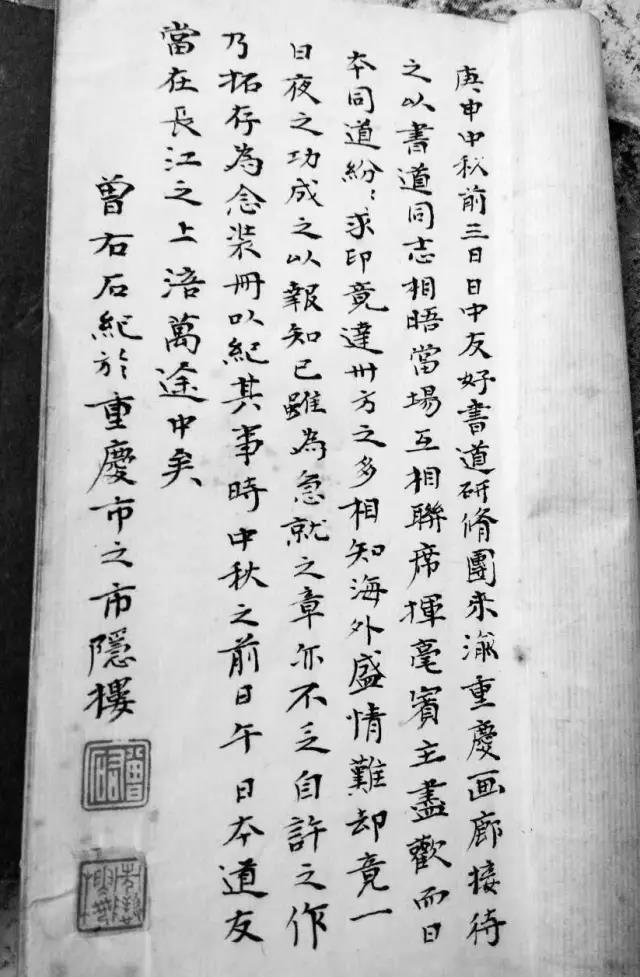 庚申中秋前三日日中友好書道研脩團来渝重慶画廊接待
之以書道同志相晤當場互相聯席揮毫賓主盡歡而日
本同道紛〻求印竟達卅方之多相知海外盛情難却竟一
日夜之功成之以報知己雖為急就之章亦不乏自許之作
乃拓存為念裝冊以紀其事時中秋之前日午日本道友
當在長江之上涪萬途中矣
曾右石紀於重慶市之市隱樓